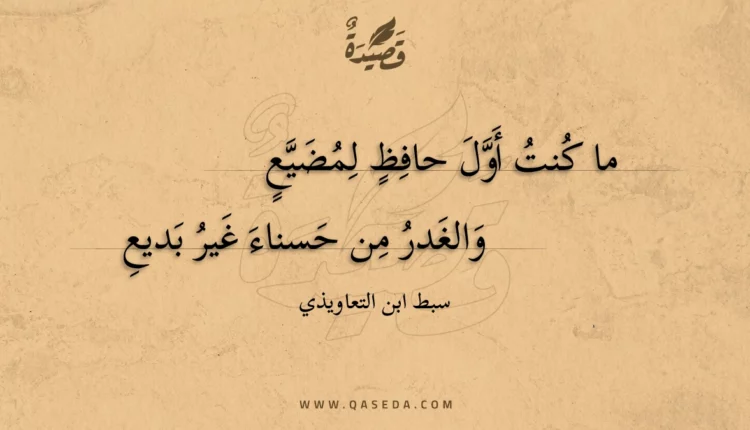 قَصِيدَةٌ
ما كُنتُ أَوَّلَ حافِظٍ لِمُضَيَّعٍ
وَالغَدرُ مِن حَسناءَ غَيرُ بَديعِ
سبط ابن التعاويذي
WWW.QASEDA.COM